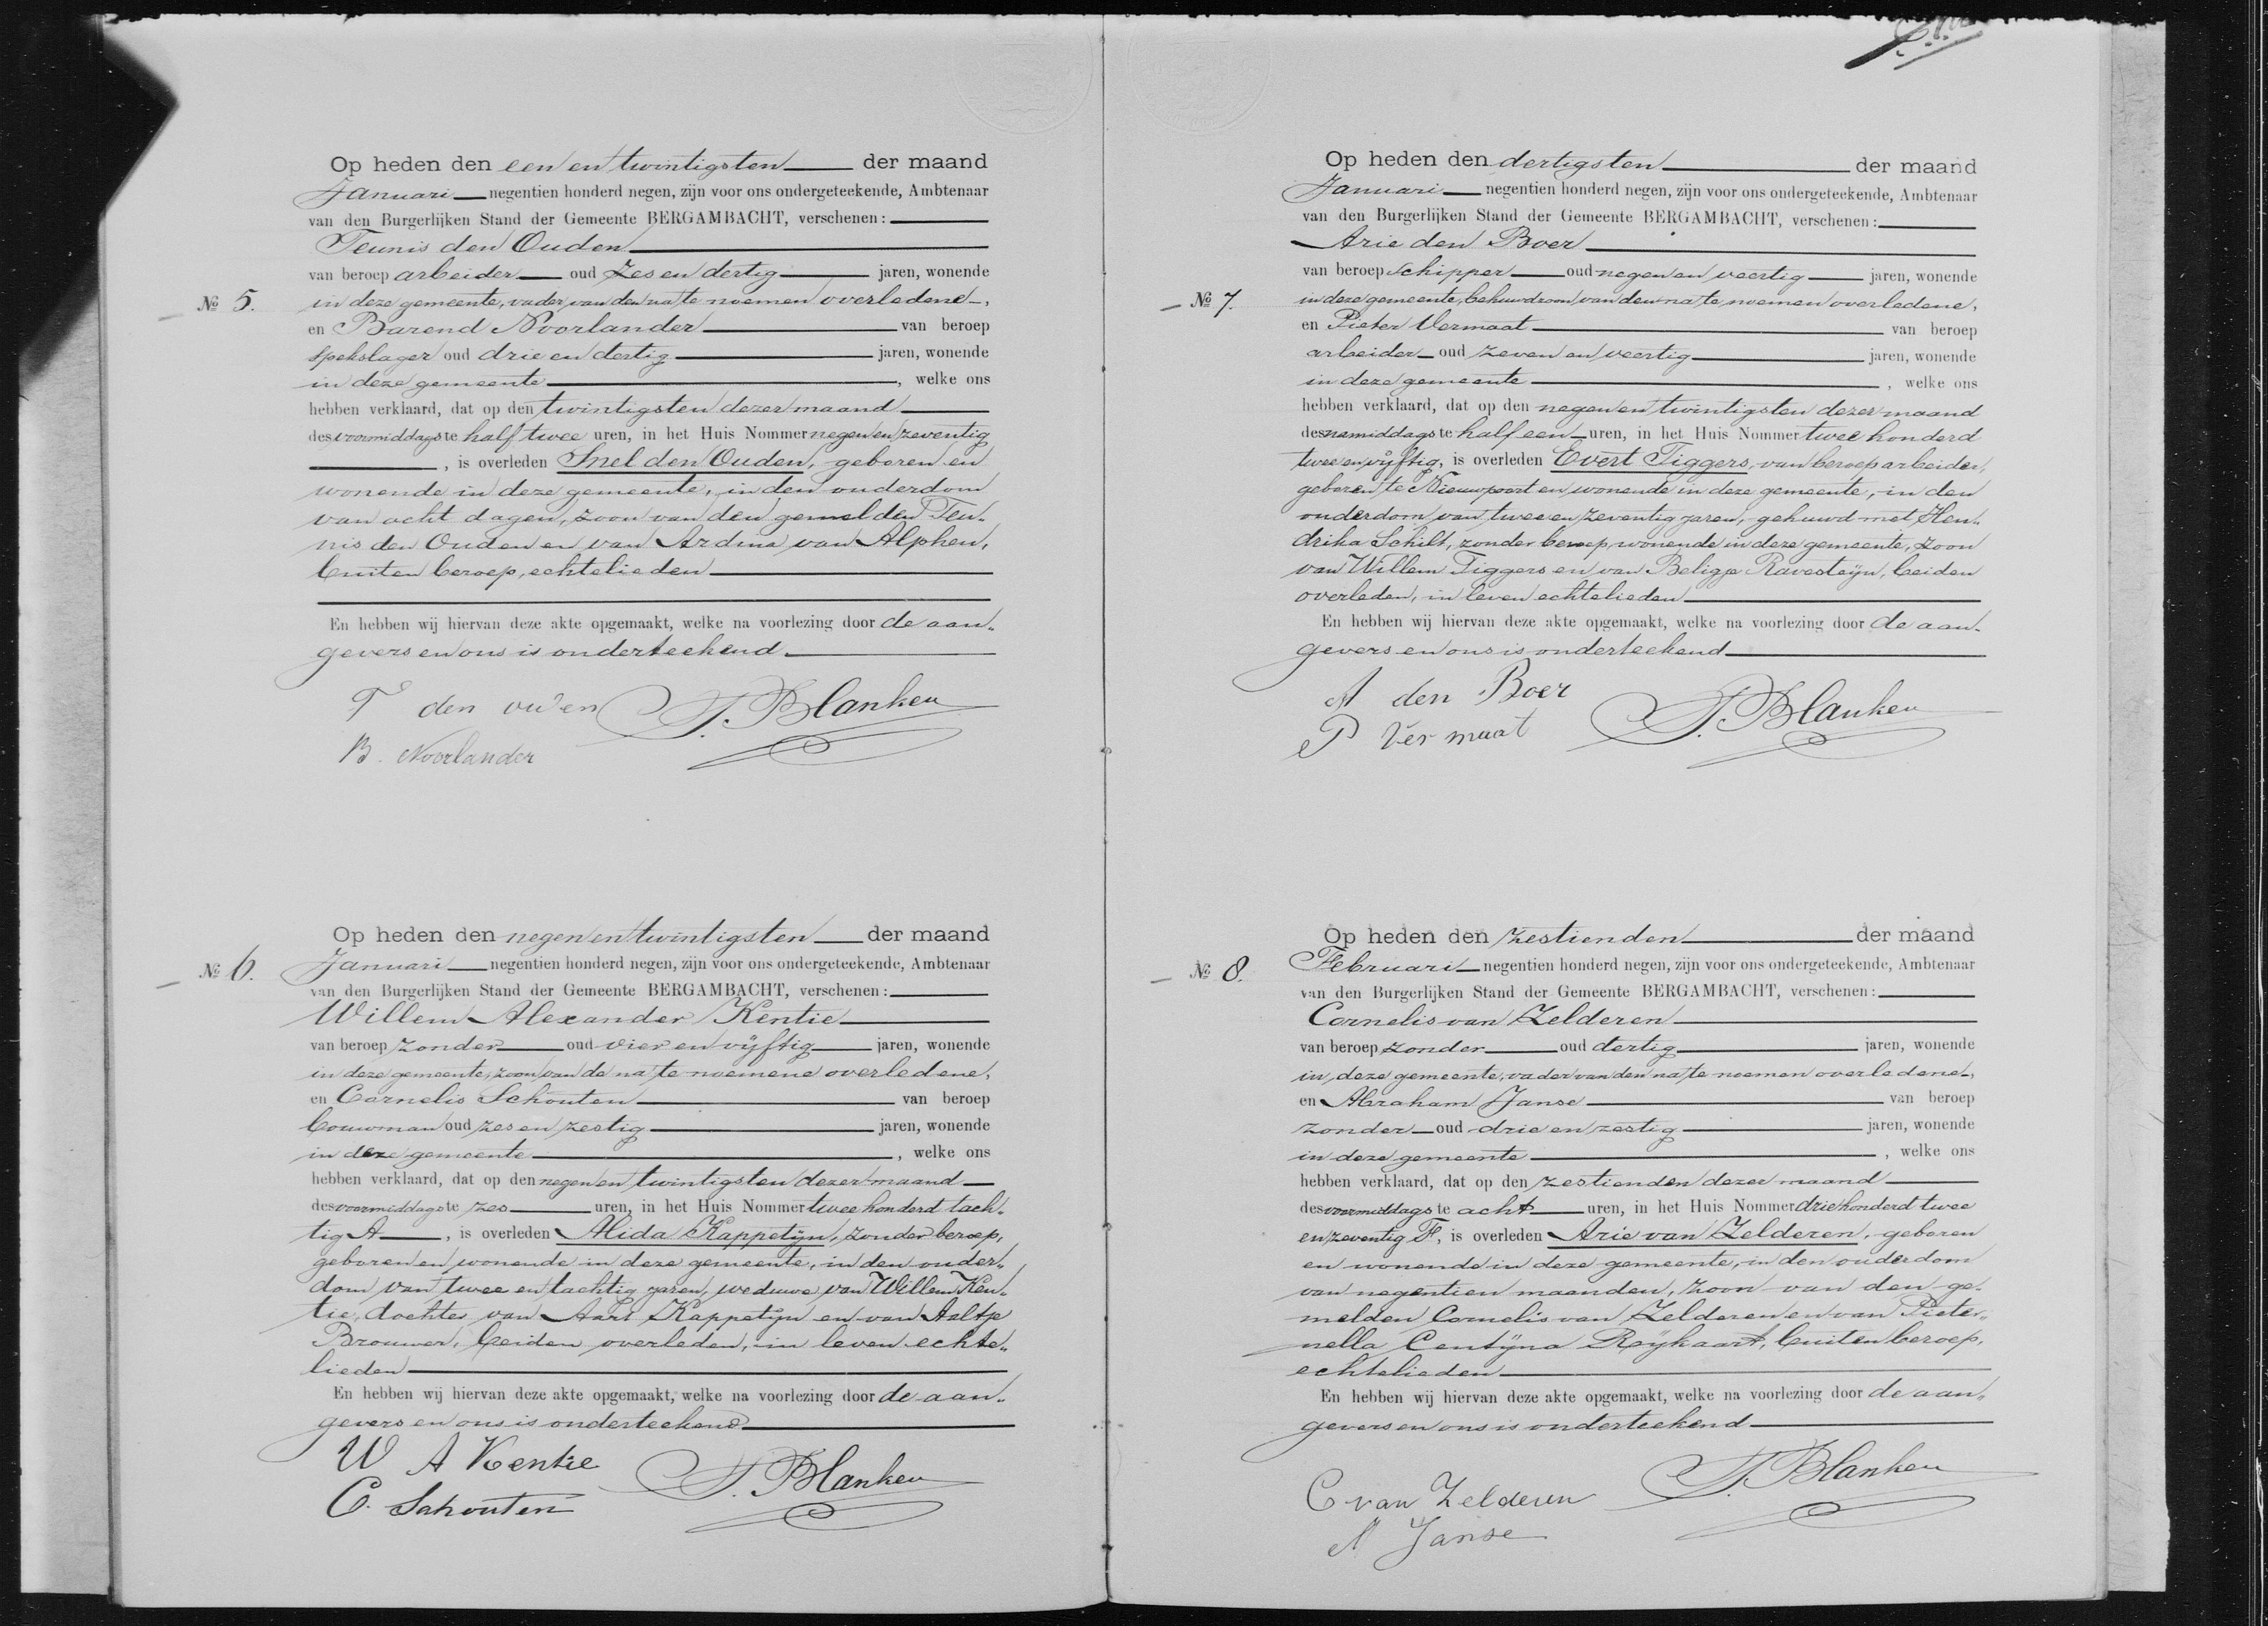 Op heden den een en twintigsten der maand
Januari negentien honderd negen, zijn voor ons ondergeteekende, Ambtenaar
van den Burgerlijken Stand der Gemeente BERGAMBACHT, verschenen:
Teunis den Ouden
van beroep arbeider oud zes en dertig jaren, wonende
№ 5. in deze gemeente, vader van den na te noemen overledene,
en Barend Noorlander van beroep
spekslager oud drie en dertig jaren, wonende
in deze gemeente, welke ons
hebben verklaard, dat op den twintigsten dezer maand
des voormiddags te half twee uren, in het Huis Nommer negen en zeventig
, is overleden Snel den Ouden, geboren en
wonende in deze gemeente, in den ouderdom
van acht dagen, zoon van den gemelden Teu-
nis den Ouden en van Ardina van Alphen,
buiten beroep, echtelieden
En hebben wij hiervan deze akte opgemaakt, welke na voorlezing door de aan-
gevers en ons is onderteekend.
T den ouden Blanken
B. Noorlander
Op heden den negen en twintigsten der maand
№ 6. Januari negentien honderd negen, zijn voor ons ondergeteekende, Ambtenaar
van den Burgerlijken Stand der Gemeente BERGAMBACHT, verschenen:
Willem Alexander Kentie
van beroep zonder oud vier en vijftig jaren, wonende
in deze gemeente, zoon van de na te noemene overledene,
en Cornelis Schouten van beroep
bouwman oud zes en zestig jaren, wonende
in deze gemeente, welke ons
hebben verklaard, dat op den negen en twintigsten dezer maand
des voormiddags te zes uren, in het Huis Nommer twee honderd tach-
tig A, is overleden Alida Kappetijn, zonder beroep,
geboren en wonende in deze gemeente, in den ouder-
dom van twee en tachtig jaren, weduwe van Willem Ken-
tie, dochter van Aart Kappetijn en van Aaltje
Brouwer, beiden overleden, in leven echte-
lieden
En hebben wij hiervan deze akte opgemaakt, welke na voorlezing door de aan-
gevers en ons is onderteekend
W A Kentie Blanken
C. Schouten
Op heden den dertigsten der maand
Januari negentien honderd negen, zijn voor ons ondergeteekende, Ambtenaar
van den Burgerlijken Stand der Gemeente BERGAMBACHT, verschenen:
Arie den Boer
van beroep schipper oud negen en veertig jaren, wonende
№ 7. in deze gemeente, behuwdzoon van den na te noemen overledene,
en Pieter Vermaat van beroep
arbeider oud zeven en veertig jaren, wonende
in deze gemeente, welke ons
hebben verklaard, dat op den negen en twintigsten dezer maand
des namiddags te half een uren, in het Huis Nommer twee honderd
twee en vijftig, is overleden Evert Tiggers, van beroep arbeider,
geboren te Nieuwpoort en wonende in deze gemeente, in den
ouderdom van twee en zeventig jaren, gehuwd met Hen-
drika Schilt, zonder beroep, wonende in deze gemeente, zoon
van Willem Tiggers en van Beligje Ravesteijn, beiden
overleden, in leven echtelieden
En hebben wij hiervan deze akte opgemaakt, welke na voorlezing door de aan-
gevers en ons is onderteekend
A den Boer
P Vermaat Blanken
Op heden den zestienden der maand
№ 8. Februari negentien honderd negen, zijn voor ons ondergeteekende, Ambtenaar
van den Burgerlijken Stand der Gemeente BERGAMBACHT, verschenen:
Cornelis van Zelderen
van beroep zonder oud dertig jaren, wonende
in deze gemeente, vader van den na te noemen overledene,
en Abraham Janse van beroep
zonder oud drie en zestig jaren, wonende
in deze gemeente, welke ons
hebben verklaard, dat op den zestienden dezer maand
des voormiddags te acht uren, in het Huis Nommer driehonderd twee
en zeventig F, is overleden Arie van Zelderen, geboren
en wonende in deze gemeente, in den ouderdom
van negentien maanden, zoon van den ge-
melden Cornelis van Zelderen en van Pieter-
nella Centijna Rijkaart, buiten beroep,
echtelieden
En hebben wij hiervan deze akte opgemaakt, welke na voorlezing door de aan-
gevers en ons is onderteekend
C van Zelderen Blanken
A Janse